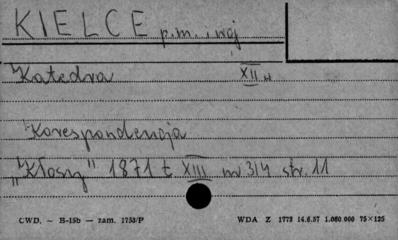 KIELCE p.m. i woj
Katedra XII w
Korespondencja
"Kłosy" 1871 t XIII nr 314 str. 11
CWD. — H-15b — zam. 1753/P WDA Z 1773 14.6.57 1.000.000 75×125